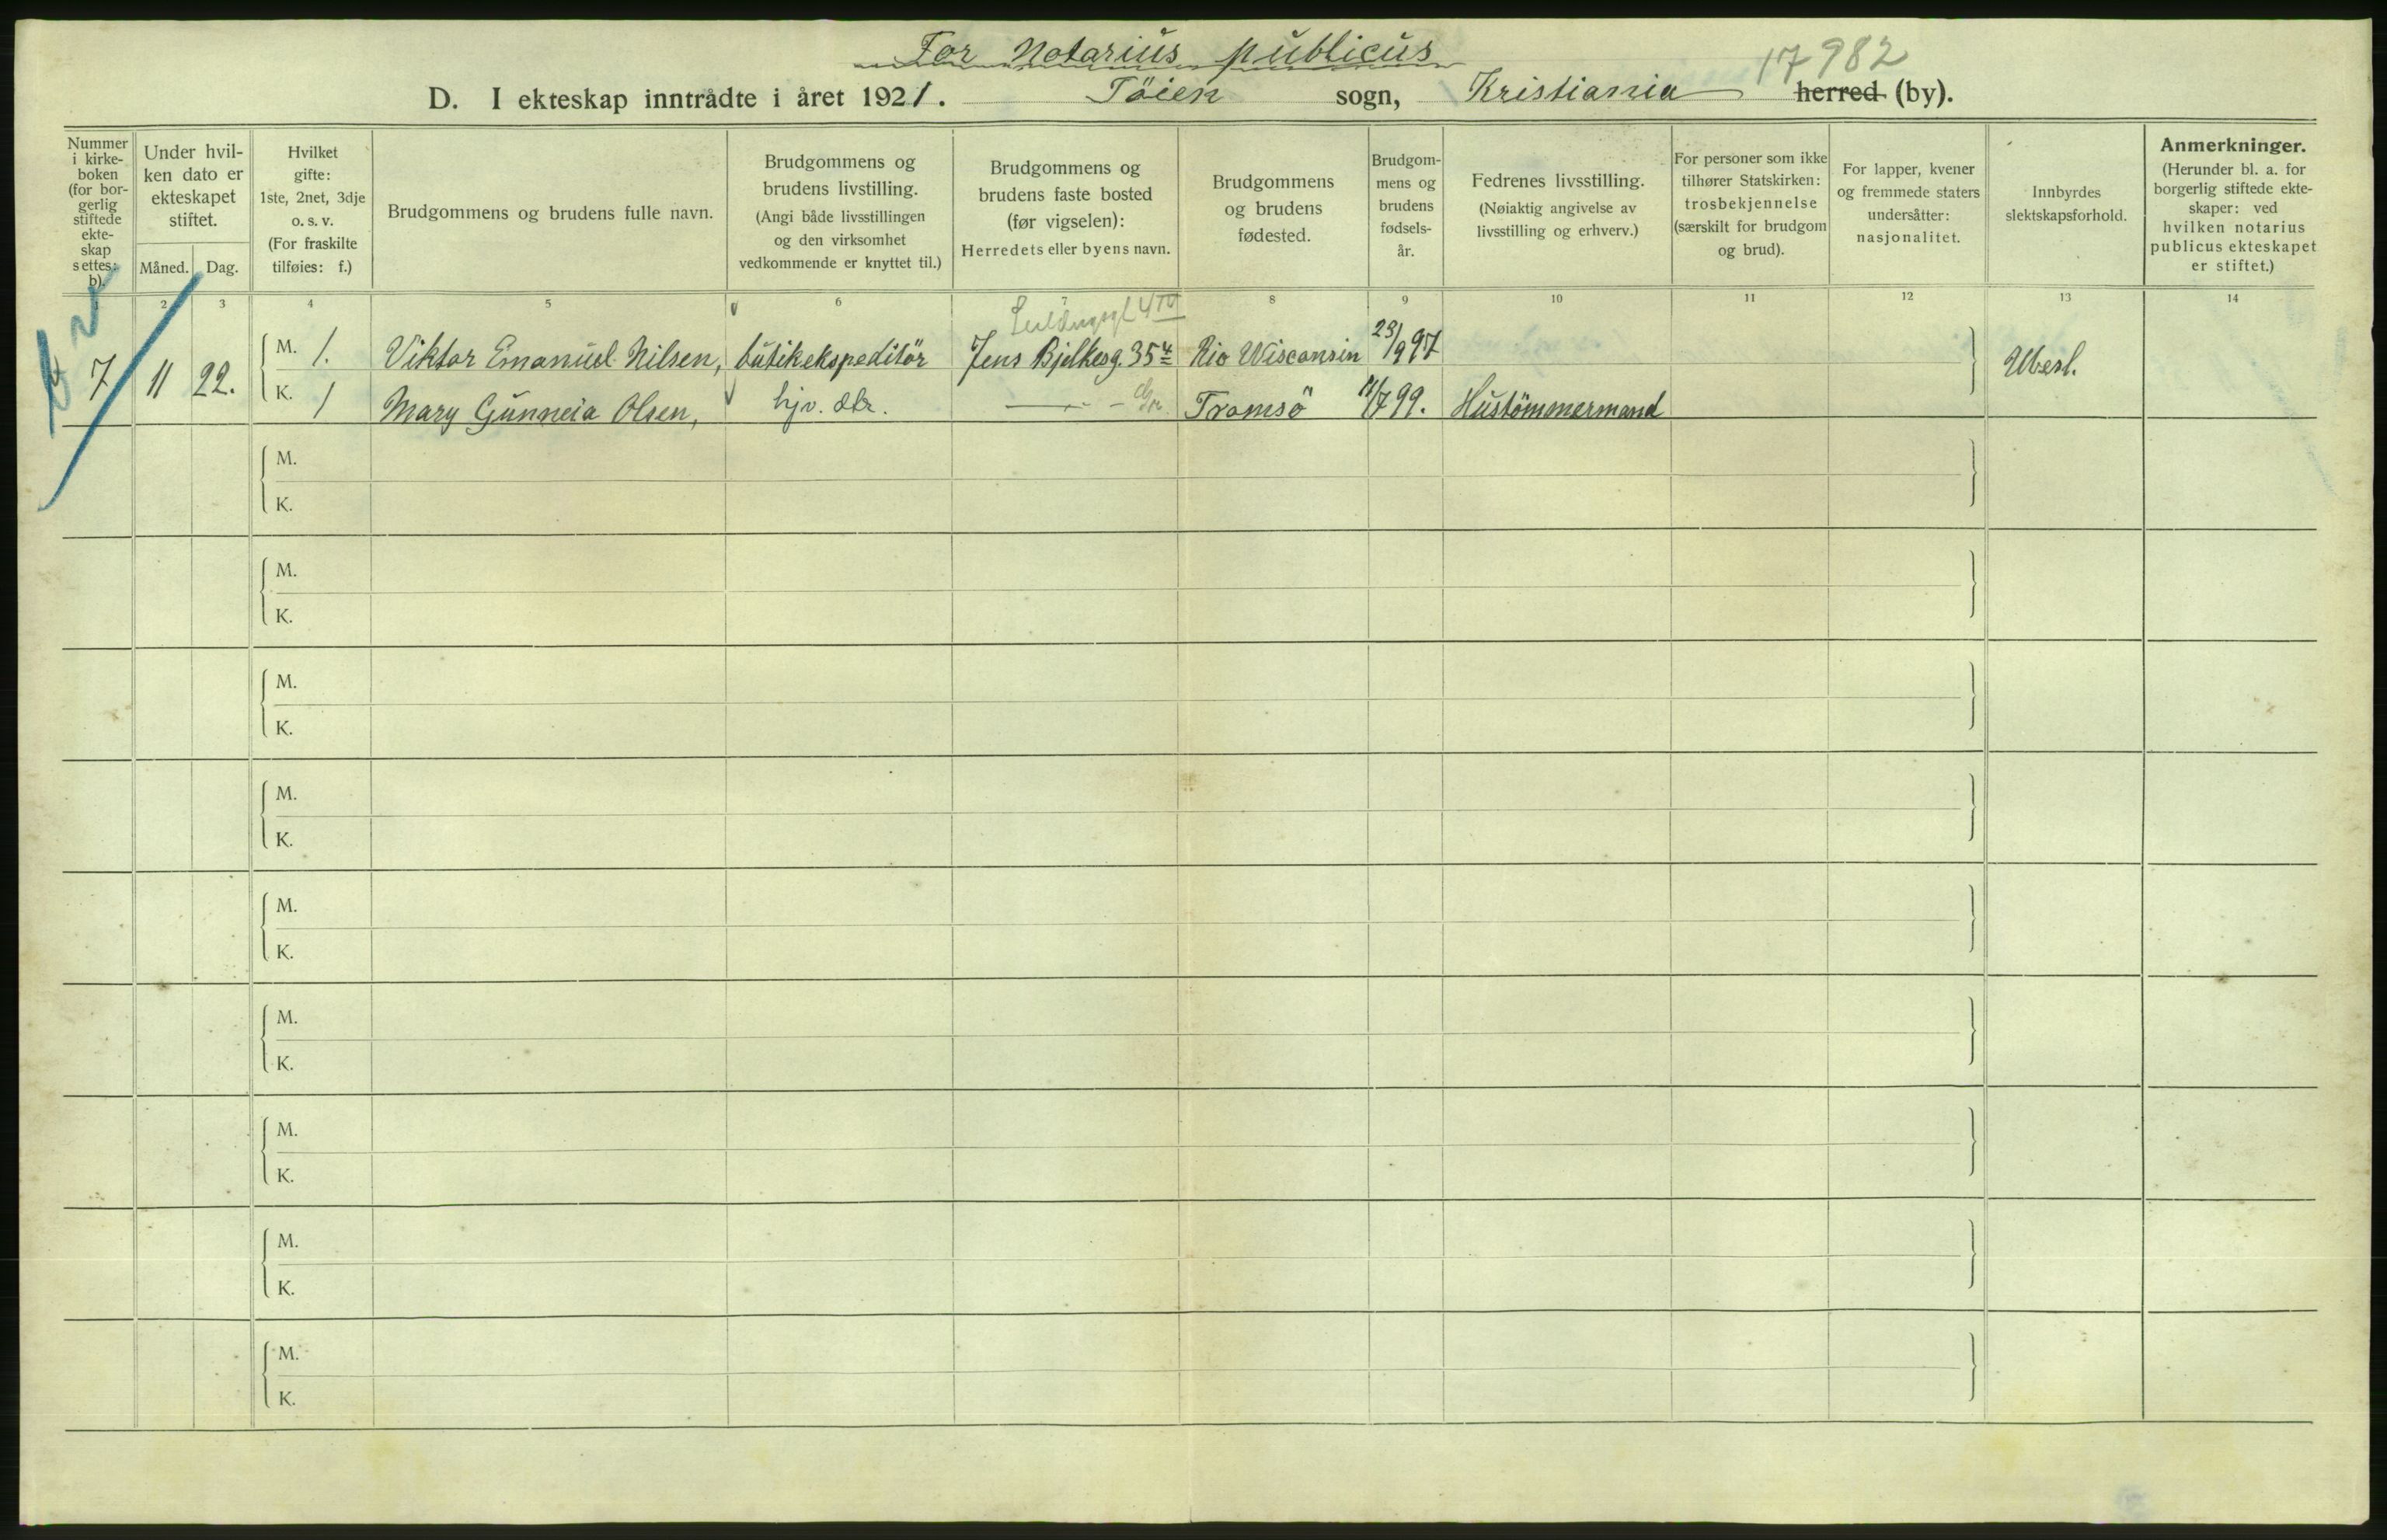 For Notarius publicus
17982
D. I ekteskap inntrådte i året 1921. Töien sogn, Kristiania herred (by).
Nummer
i kirke-
boken
(for bor-
gerlig
stiftede
ekte-
skap
settes:
b).
Under hvil-
ken dato er
ekteskapet
stiftet.
Måned. Dag.
Hvilket
gifte:
1ste, 2net, 3dje
o. s. v.
(For fraskilte
tilføies: f.)
Brudgommens og brudens fulle navn.
Brudgommens og
brudens livstilling.
(Angi både livsstillingen
og den virksomhet
vedkommende er knyttet til.)
Brudgommens og
brudens faste bosted
(før vigselen):
Herredets eller byens navn.
Brudgommens
og brudens
fødested.
Brudgom-
mens og
brudens
fødsels-
år.
Fedrenes livsstilling.
(Nøiaktig angivelse av
livsstilling og erhverv.)
For personer som ikke
tilhører Statskirken:
trosbekjennelse
(særskilt for brudgom
og brud).
For lapper, kvener
og fremmede staters
undersåtter:
nasjonalitet.
Innbyrdes
slektskapsforhold.
Anmerkninger.
(Herunder bl. a. for
borgerlig stiftede ekte-
skaper: ved
hvilken notarius
publicus ekteskapet
er stiftet.)
1 2 3 4 5 6 7 8 9 10 11 12 13 14
7 11 22. M. 1. Viktor Emanuel Nilsen, butikekspeditör Jens Bjelkesg. 35 4 Rio Wisconsin 23/9 97 Ubesl.
K. 1 Mary Gunneia Olsen, hjv. dtr. — " — Tromsö 11/7 99. Hustömmermand
M.
K.
M.
K.
M.
K.
M.
K.
M.
K.
M.
K.
M.
K.
M.
K.
M.
K.